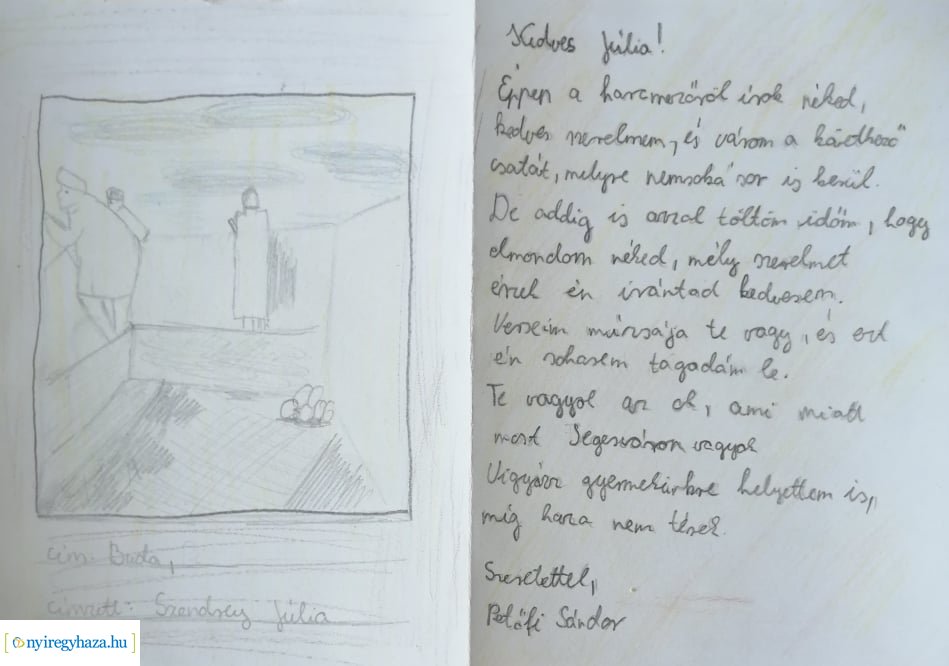 cím: Buda,
címzett: Szendrey Júlia
nyiregyhaza.hu
Kedves Júlia!
Éppen a harcmezőről írok néked,
kedves szerelmem, és várom a következő
csatát, melyre nemsoká sor is kerül.
De addig is azzal töltöm időm, hogy
elmondom néked, mély szerelmet
érzek én irántad kedvesem.
Verseim múzsája te vagy, és ezt
én sohasem tagadám le.
Te vagyol az ok, ami miatt
most Segesváron vagyok
Vigyázz gyermekünkre helyettem is,
míg haza nem térek.
Szeretettel,
Petőfi Sándor